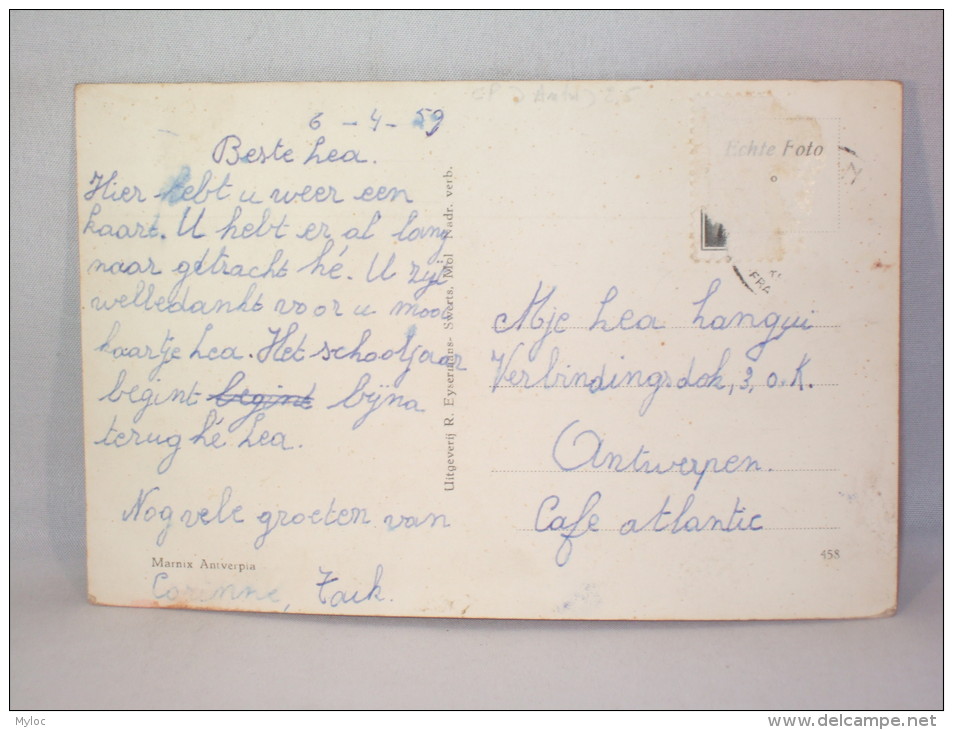 6 - 4 - 59
Beste Lea.
Hier hebt u weer een
kaart. U hebt er al lang
naar getracht hé. U zijt
welledankt voor u mooi
kaartje Lea. Het schooljaar
begint begint bijna
terug hé Lea.
Nog vele groeten van
Marnix Antverpia
Corinne,
Uitgeverij R. Eysermans- Swerts, Mol Nadr. verb.
Echte Foto
FRA
Mje Lea Hangui
Verbindingsdok, 3, o.K.
Antwerpen.
Cafe atlantic
458
Myloc
delcampe.net